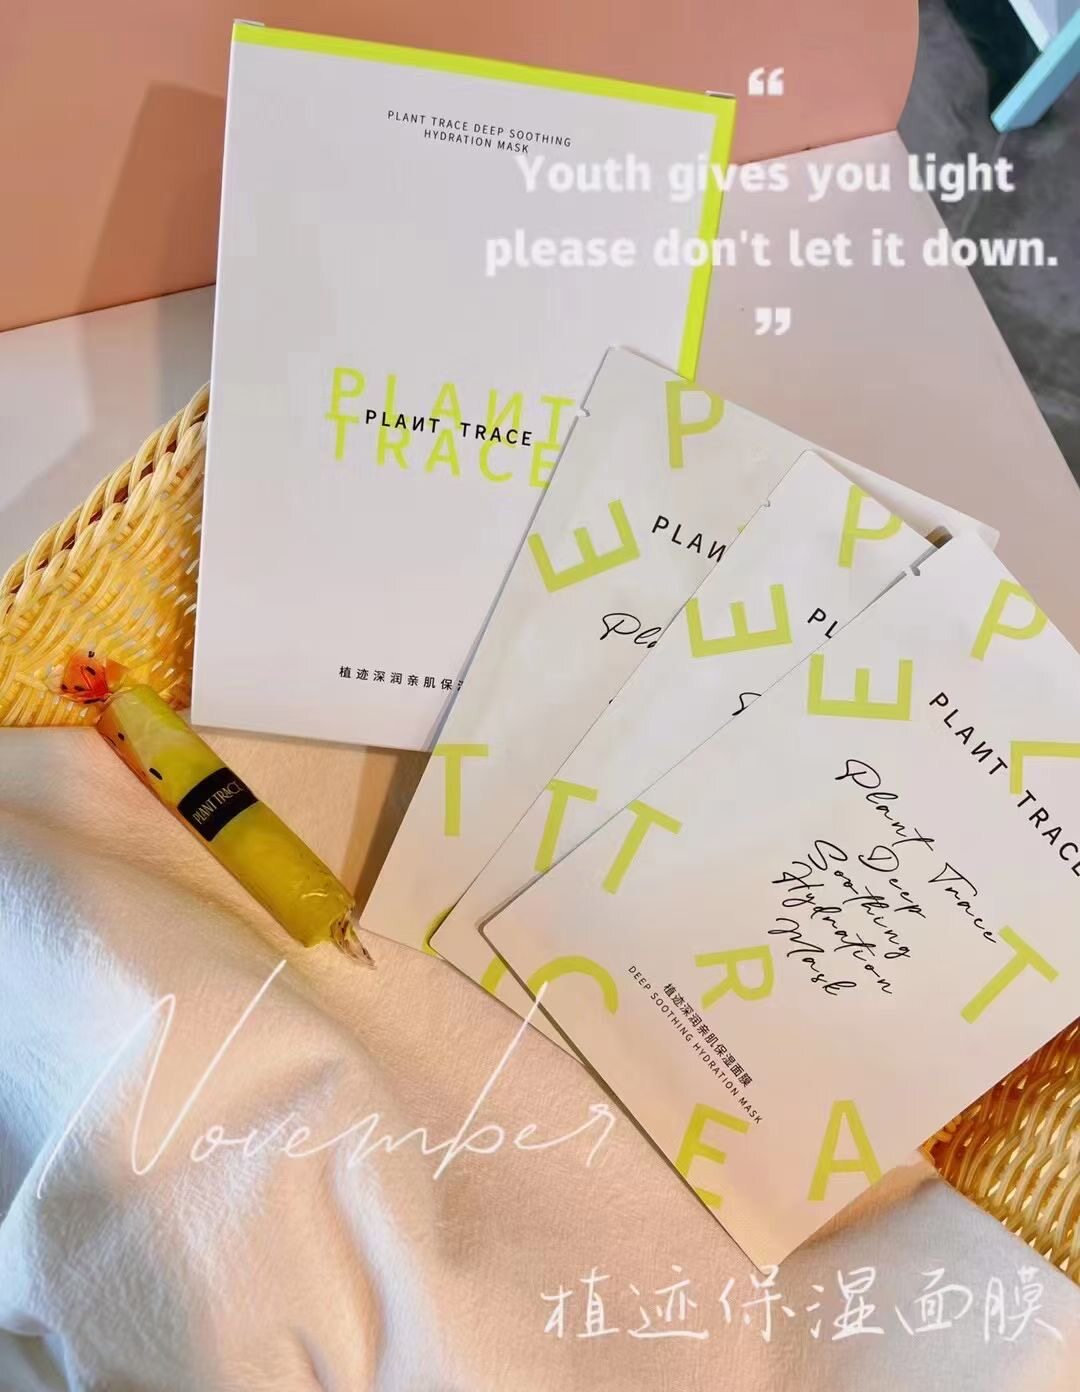 PLANT TRACE DEEP SOOTHING
HYDRATION MASK
“
Youth gives you light
please don't let it down.
”
PLAИT
TRACE
PLAИT TRACE
植迹深润亲肌保
P
E
PLAИ
T
P
E
PL
T
P
E
L
PLAИT TRACE
Plant Trace
Deep
Soothing
Hydration
Mask
T
T
R
C
植迹深润亲肌保湿面膜
DEEP SOOTHING HYDRATION MASK
E
A
PLANT TRACE
November
植迹保湿面膜